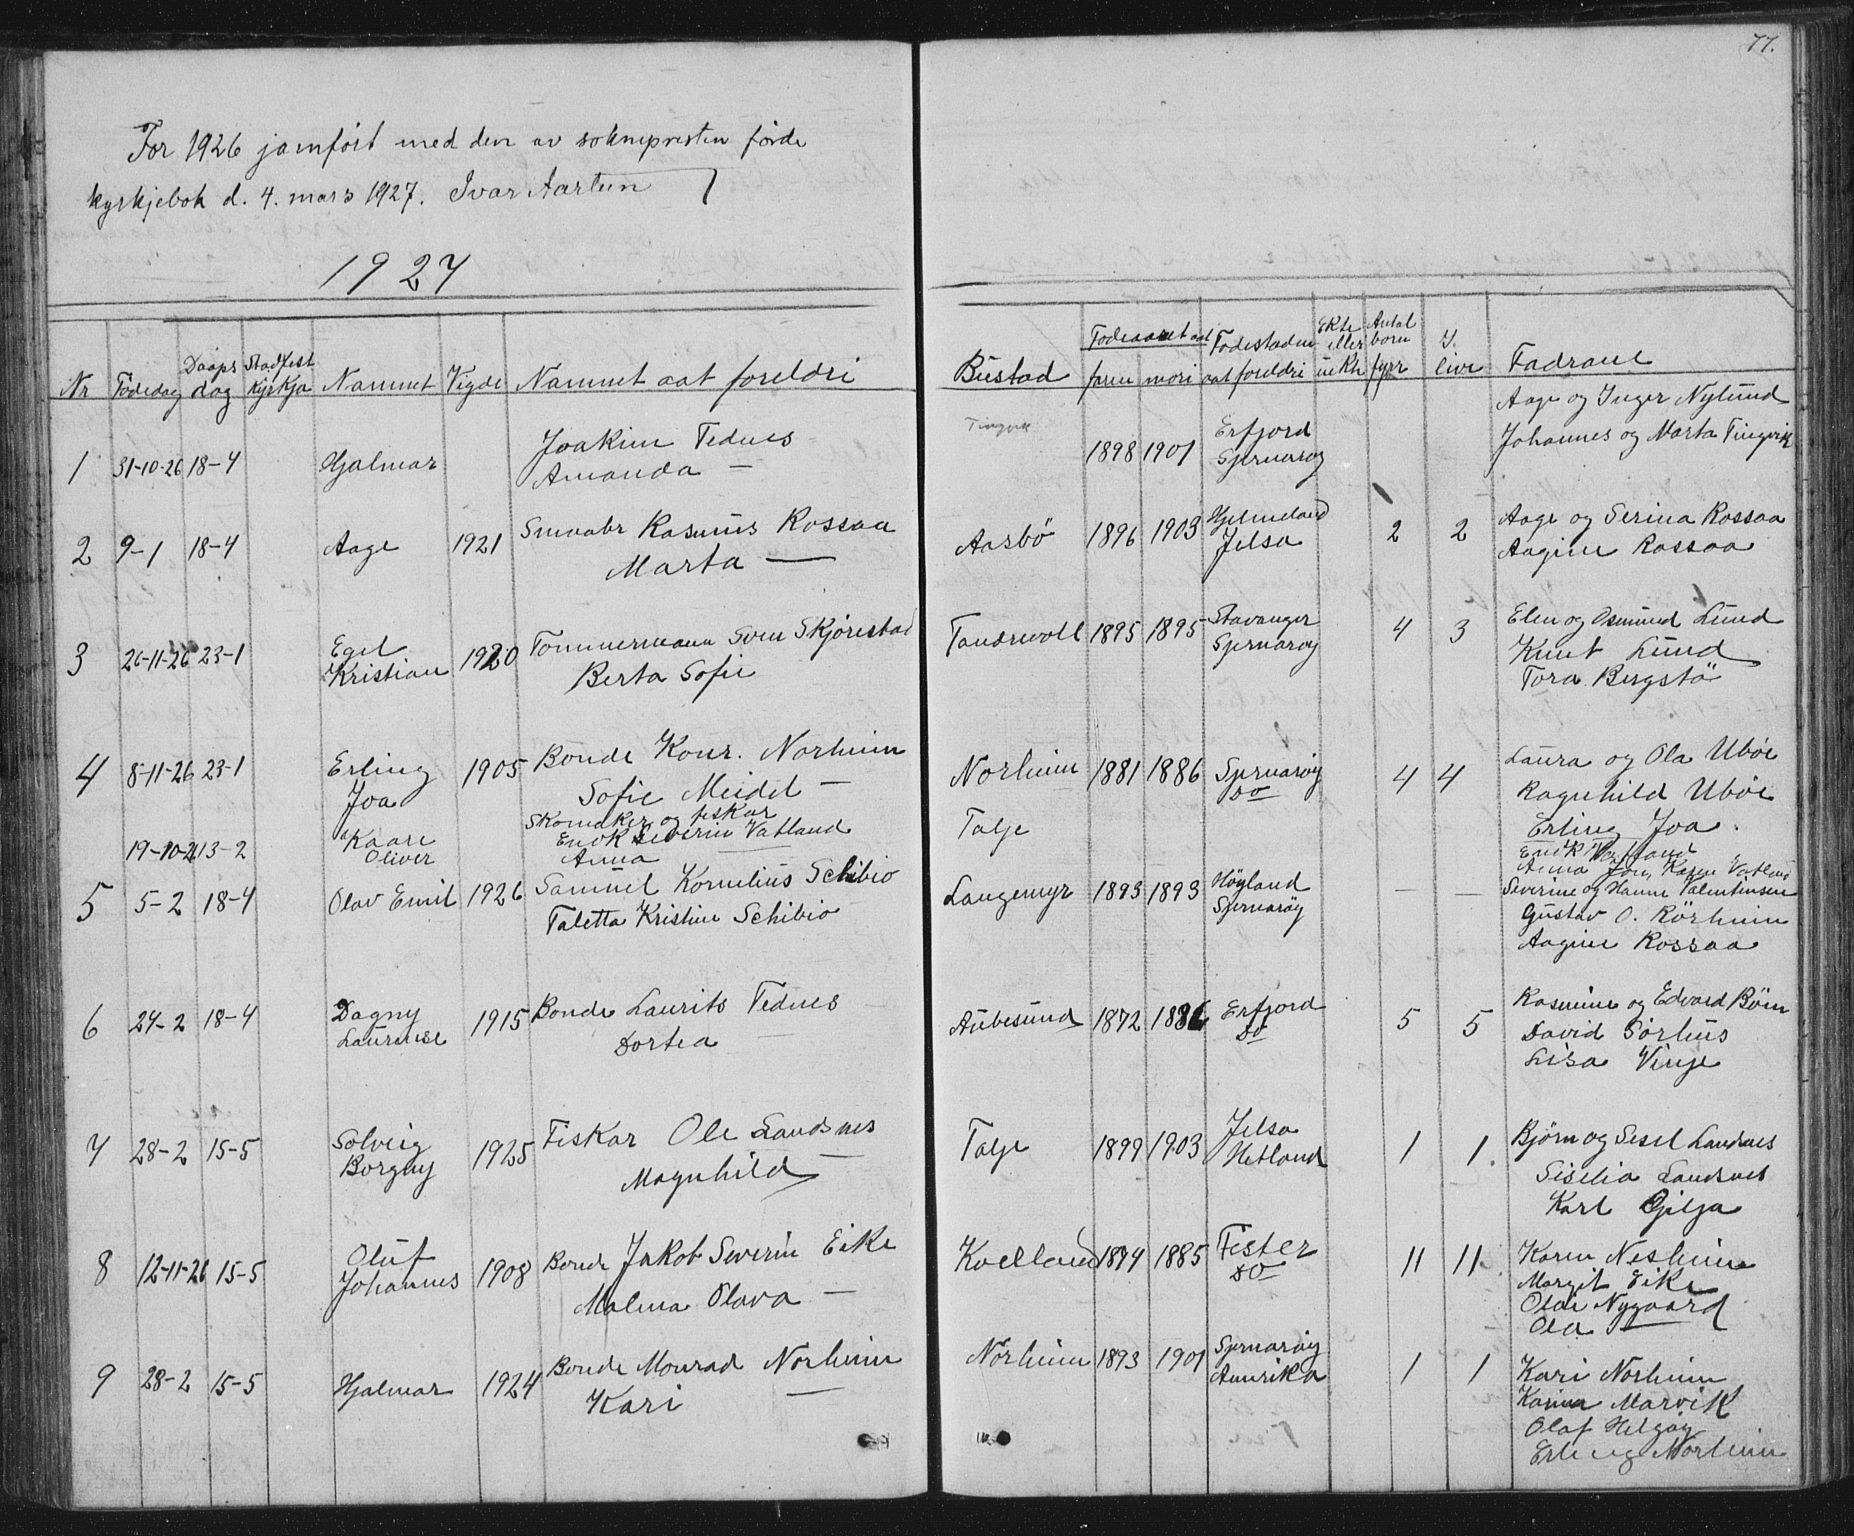 77.
For 1926 jamført med den av sokneprestenførde
kyrkjebok d. 4. mars 1927. Ivar Aartun
1927
Nr Födedag Daaps dag Stadfest kyrkja Namnet Vigde Namnet aat foreldri
Bustad Födeaaret aat faren mori Födestaden aat foreldri Ekte eller uekte Antal born fyrr I live Fadrane
1 31-10-26 18-4 Hjalmar Joakim Tednes
Amanda —
Tingvik 1898 1901 Erfjord
Sjernarøy
Aage og Inger Nylund
Johannes og Marta Tingvik
2 9-1 18-4 Aage 1921 Smaabr Rasmus Rossaa
Marta —
Aasbö 1896 1903 Hjelmeland
Jelsa
2 2 Aage og Serina Rossaa
Aagine Rossaa
3 26-11-26 23-1 Egil
Kristian
1920 Tömmermann Sven Skjörestad
Berta Sofie
Tandrevoll 1895 1895 Stavanger
Sjernaröy
4 3 Elen og Osmund Lund
Knut Lund
Tora Bergstö
4 8-11-26 23-1 Erling
Joa
1905 Bonde Konr. Norheim
Sofie Meidel —
Norheim 1881 1886 Sjernaröy
Do
4 4 Laura og Ola Uböe
Ragnhild Uböe
Erling Joa
19-10-26 13-2 Kaare
Oliver
Skomaker og fiskar
Enok Severin Vatland
Anna —
Talje
Enok Vatland
Anna Joa, Karen Vatland
5 5-2 18-4 Olav Emil 1926 Samuel Kornelius Schibio
Taletta Kristine Schibio
Langemyr 1893 1893 Höyland
Sjernaröy
— — Severine og Hanne Valentinsen
Gustav O. Rörheim
Aagine Rossaa
6 24-2 18-4 Dagny
Laurense
1915 Bonde Laurits Tednes
Dortea —
Aubesund 1872 1886 Erfjord
Do
5 5 Rasmine og Edvard Böen
David Sörhus
Lisa Vinje
7 28-2 15-5 Solveig
Borgny
1925 Fiskar Ole Landsnes
Magnhild —
Talje 1899 1903 Jelsa
Hetland
1 1. Bjørn og Sesel Landsnes
Siselia Landsnes
Karl Gilja
8 12-11-26 15-5 Oluf
Johannes
1908 Bonde Jakob Severin Eike
Malma Olava —
Kvelland 1874 1885 Fister
Do
11 11 Karen Nesheim
Margit Eike
Olav Nygaard
Ola —
9 28-2 15-5 Hjalmar 1924 Bonde Monrad Norheim
Kari —
Norheim 1893 1901 Sjernaröy
Amerika
1 1 Kari Norheim
Karina Marvik
Olaf Helgøy
Erling Norheim